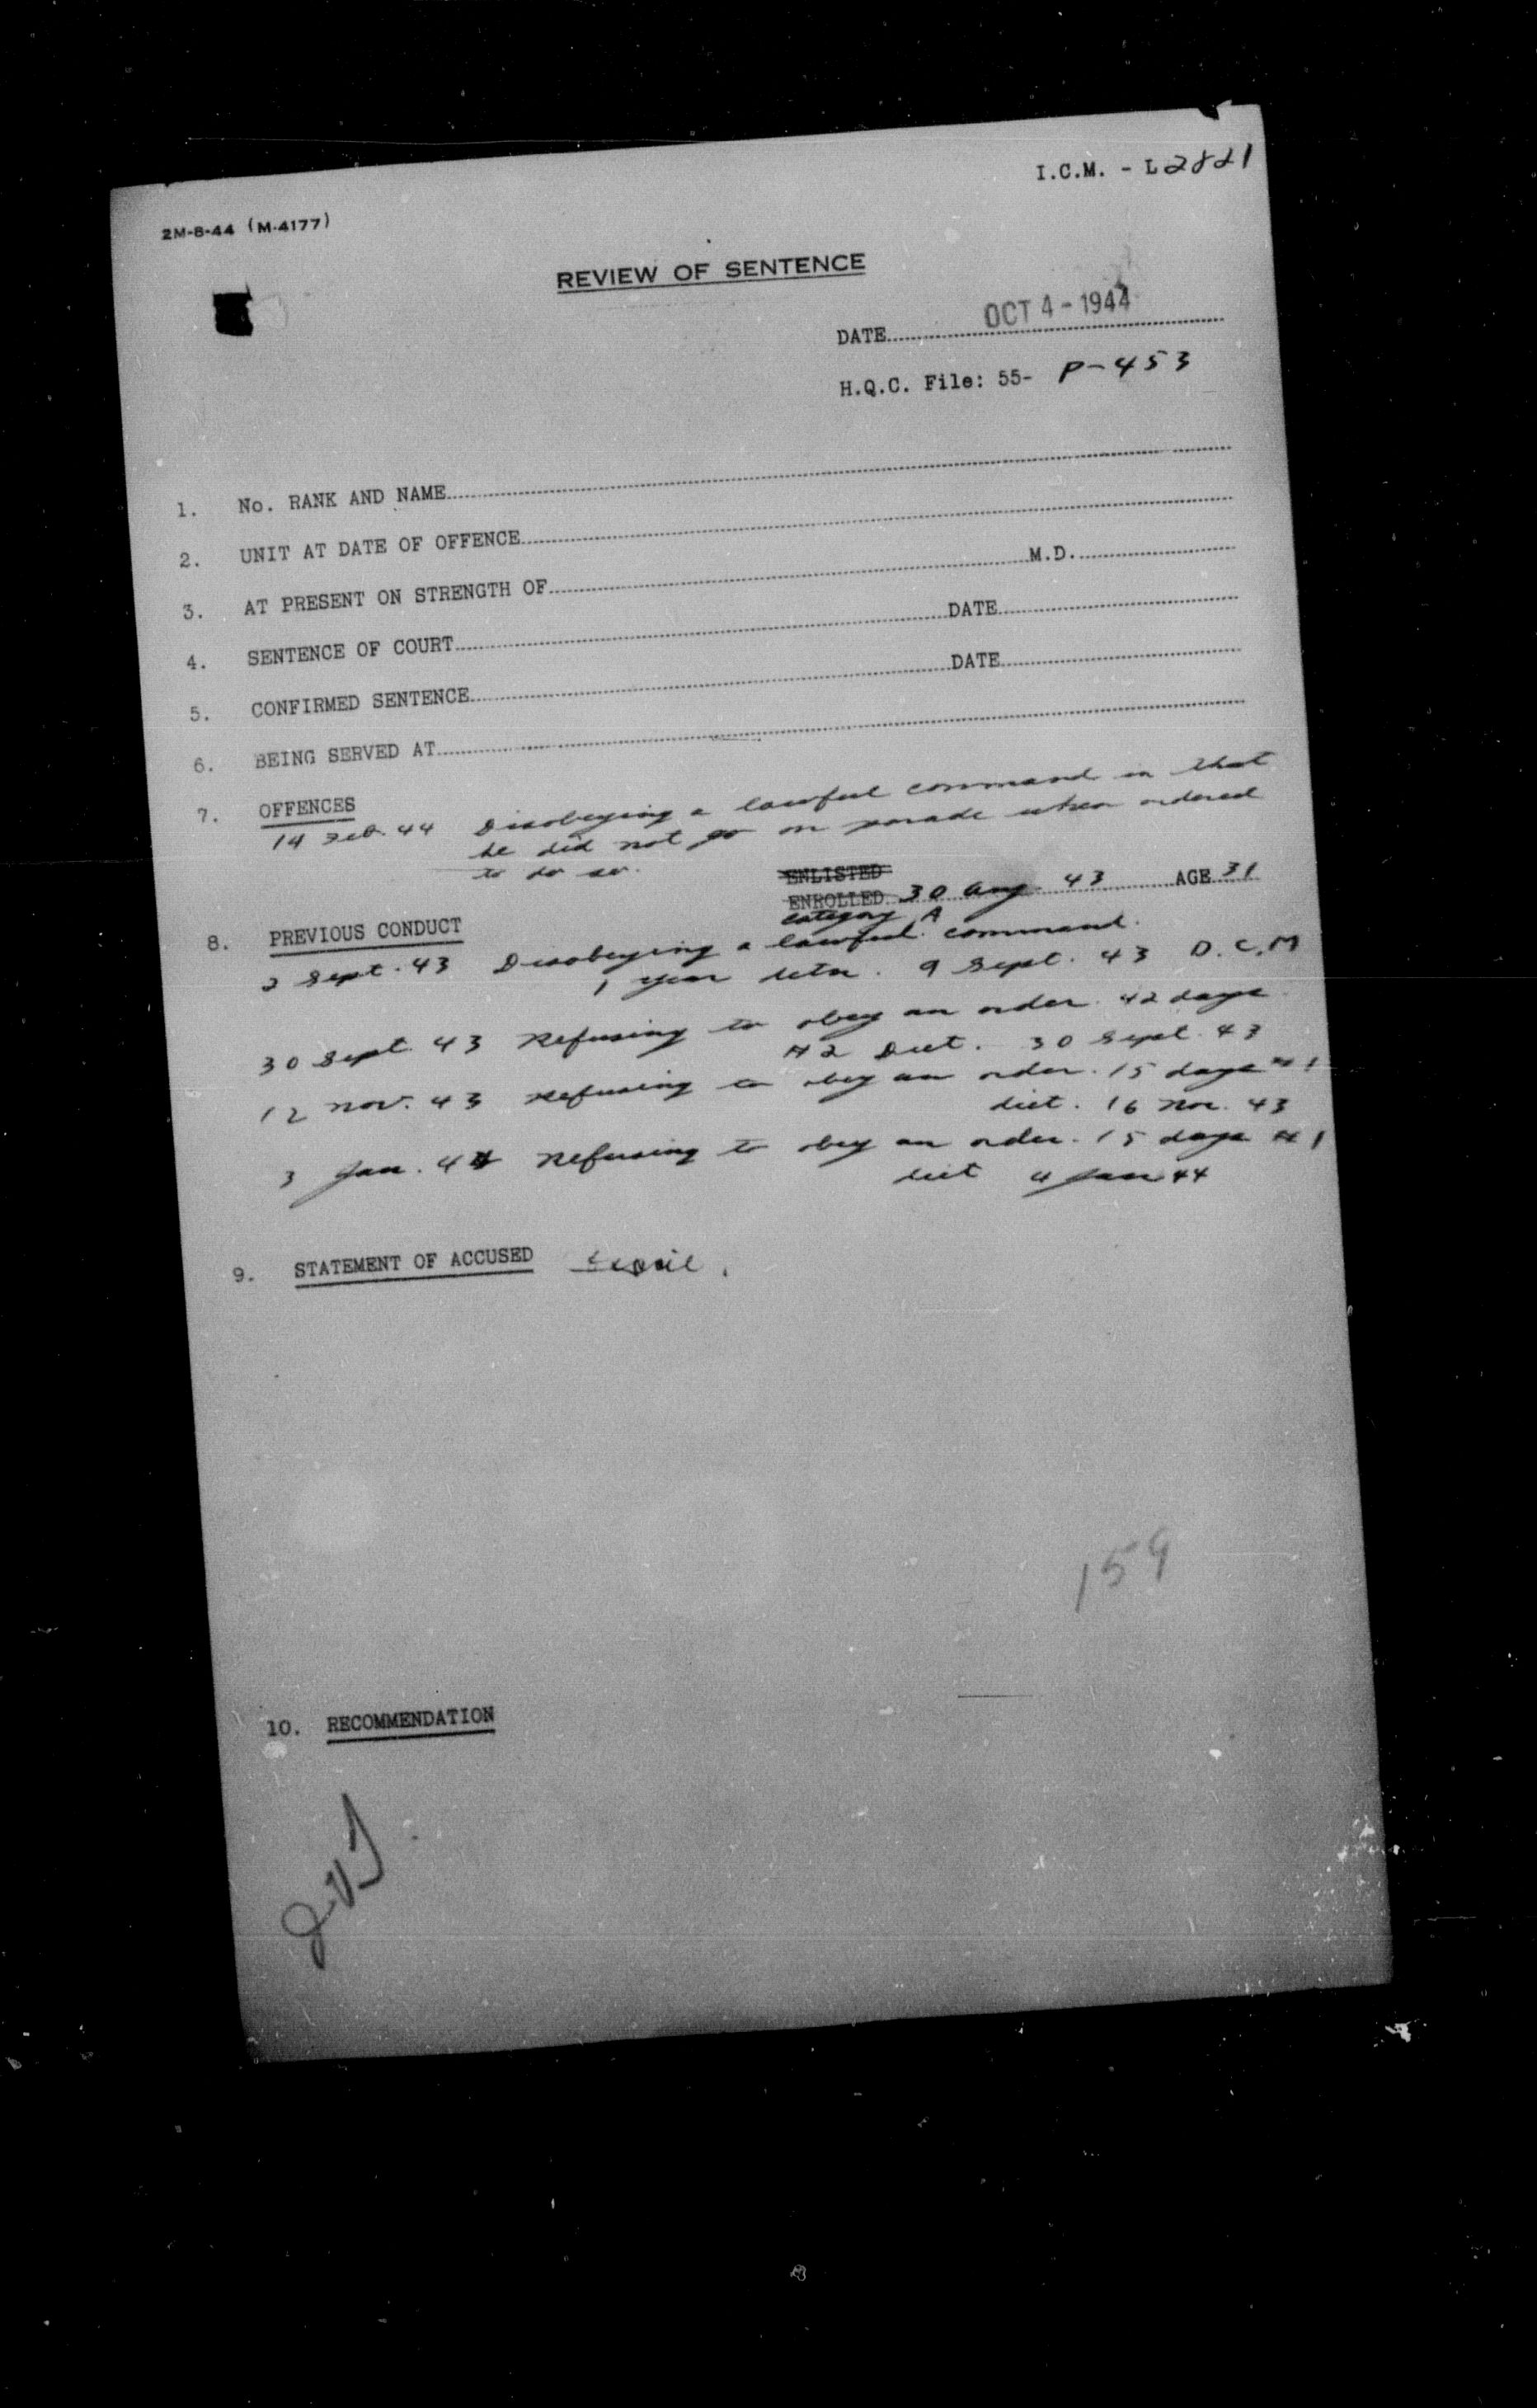 I.C.M. - L2821
2M-8-44 (M-4177)
REVIEW OF SENTENCE
DATE OCT 4 - 1944
H.Q.C. File: 55- P-453
1. No. RANK AND NAME
2. UNIT AT DATE OF OFFENCE
3. AT PRESENT ON STRENGTH OF M.D.
4. SENTENCE OF COURT DATE
5. CONFIRMED SENTENCE DATE
6. BEING SERVED AT
7. OFFENCES
14 Feb. 44 Disobeying a lawful command in that
he did not go on parade when ordered
to do so.
ENLISTED
ENROLLED 30 Aug. 43 AGE 31
category A
8. PREVIOUS CONDUCT
2 Sept. 43 Disobeying a lawful command.
1 year detn. 9 Sept. 43 D.C.M
30 Sept. 43 Refusing to obey an order. 42 days
#2 Diet. 30 Sept. 43
12 Nov. 43 Refusing to obey an order. 15 days #1
diet. 16 Nov. 43
3 Jan. 44 Refusing to obey an order. 15 days #1
diet 4 Jan 44
9. STATEMENT OF ACCUSED
159
10. RECOMMENDATION